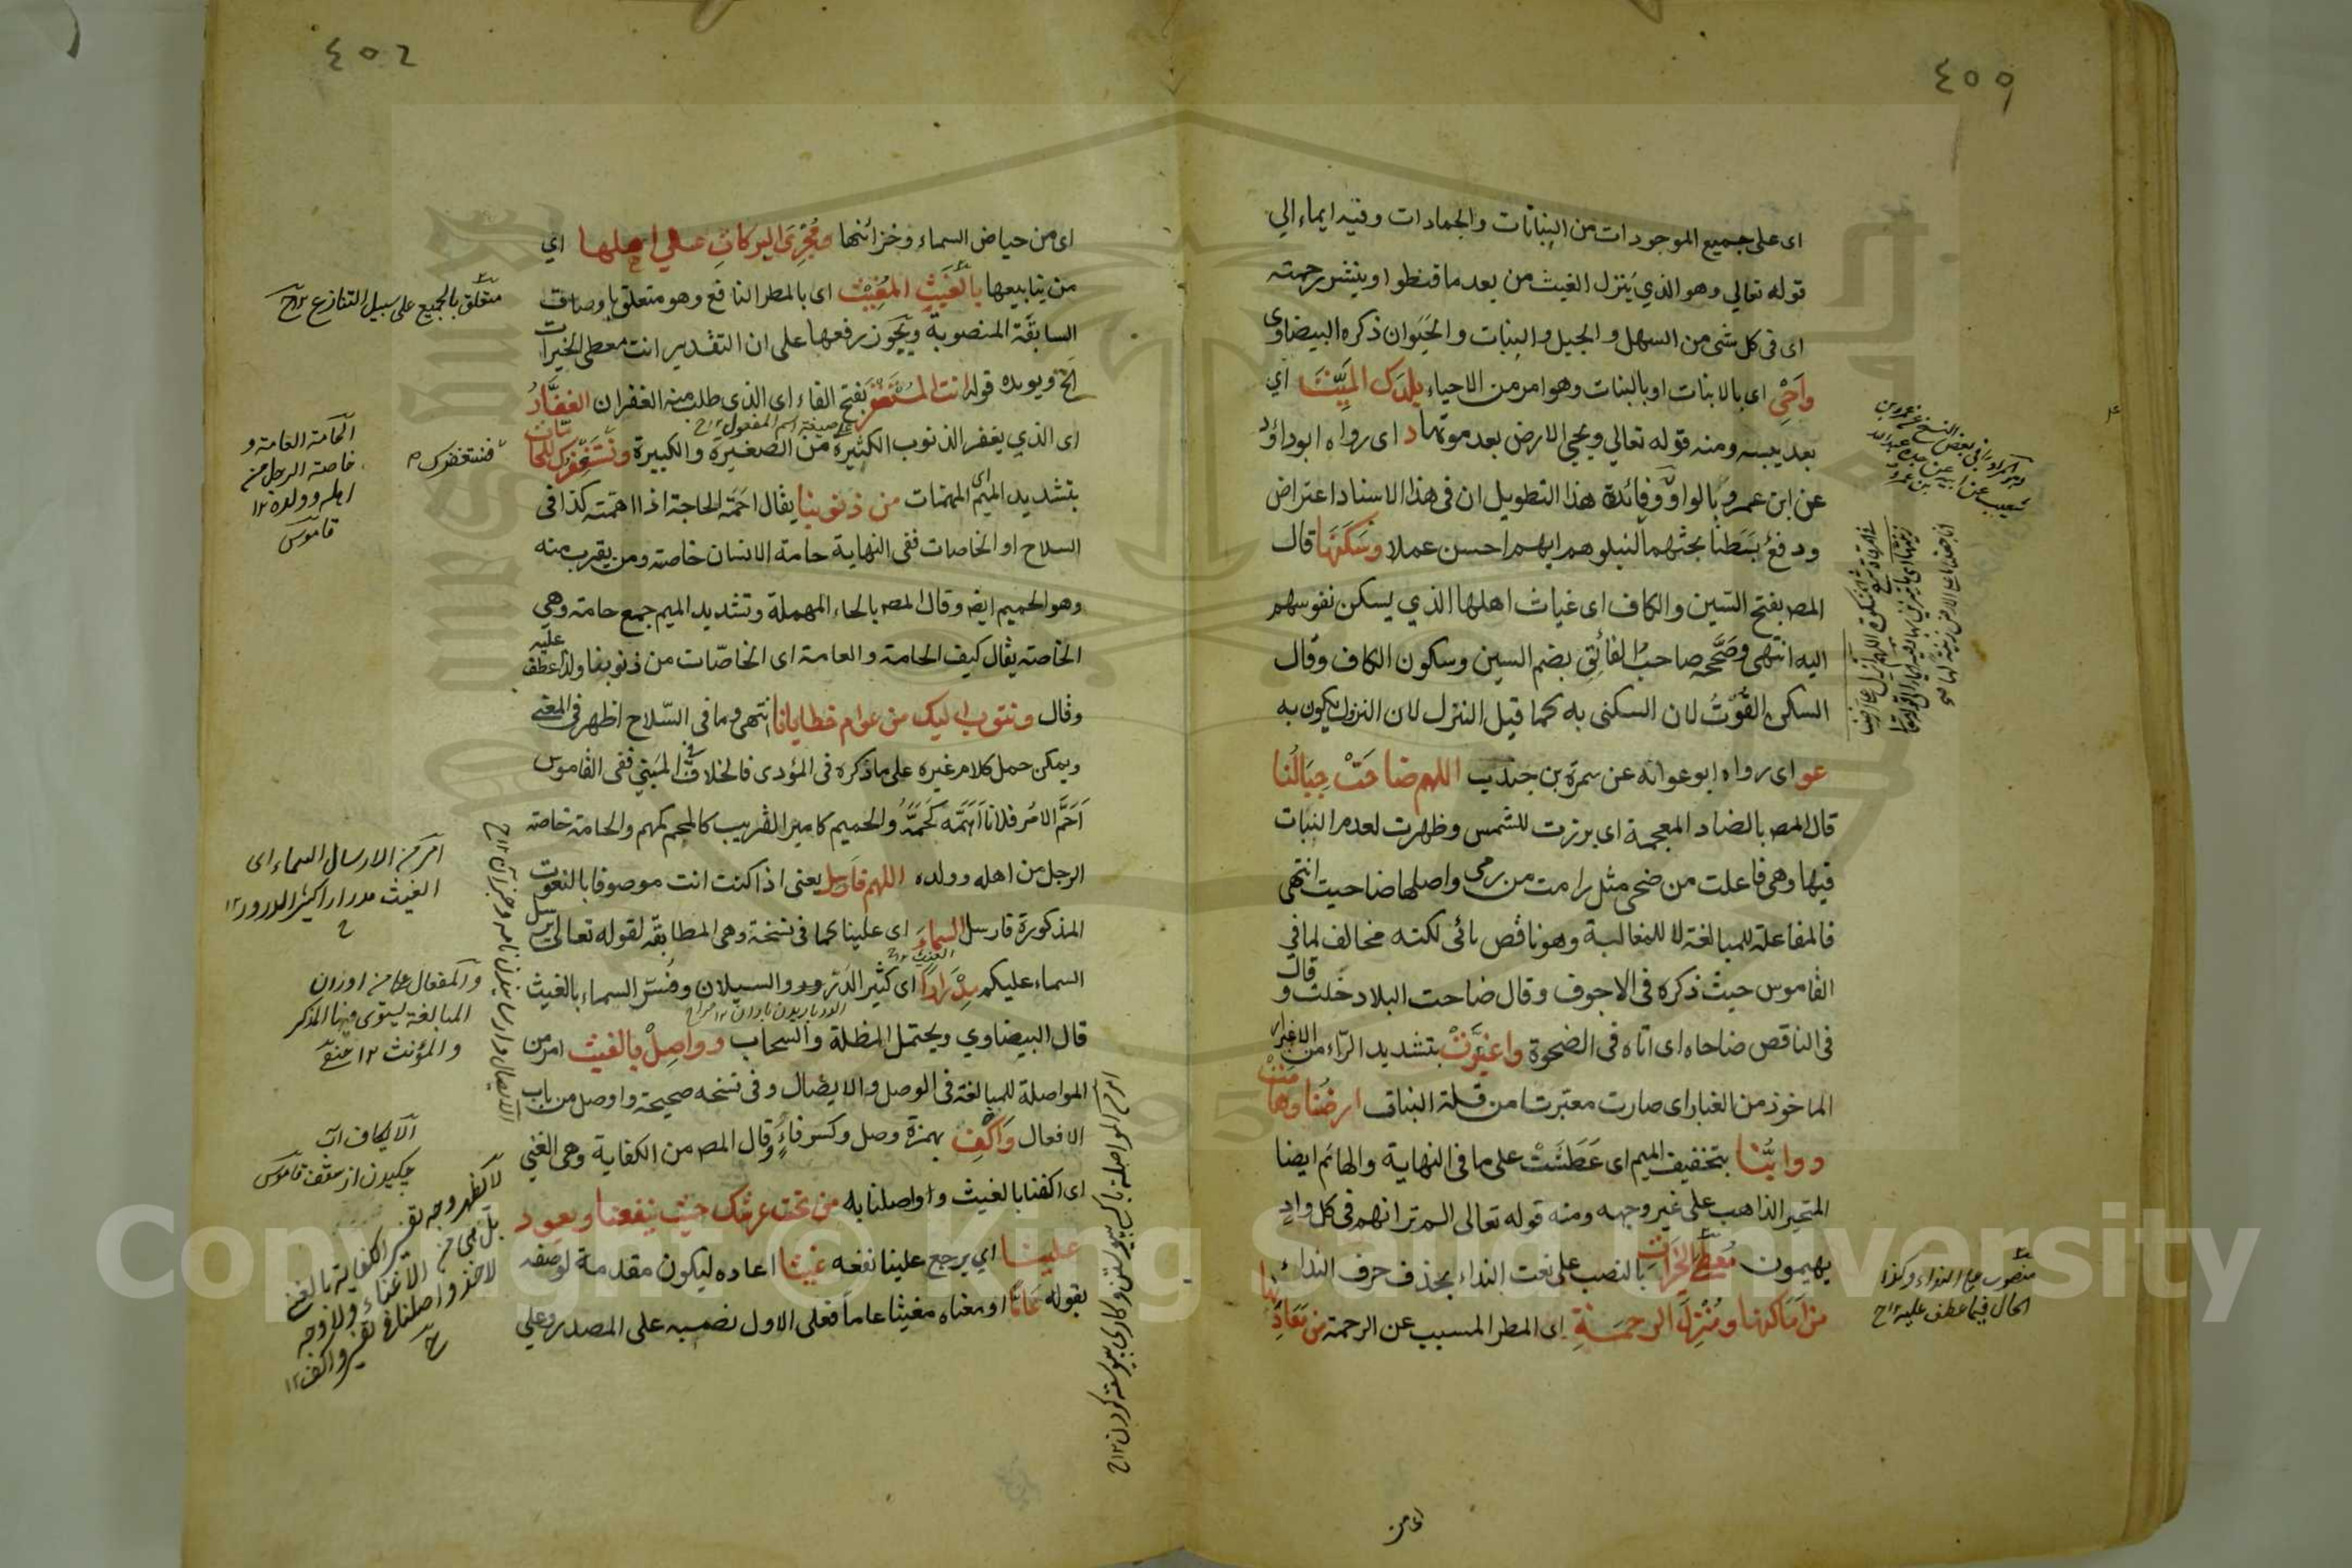 ٤٥٥
اى على جميع الموجودات من النباتات والجمادات وفيه ايماء الي
قوله تعالي وهو الذي ينزل الغيث من بعد ما قنطوا وينشر رحمته
اى فى كل شى من السهل والجبل والنبات والحيوان ذكره البيضاوى
واحي اى بالانبات او بالنبات وهو امر من الاحياء بلدك الميت اي
بعد يبسه ومنه قوله تعالي ويحي الارض بعد موتها د اى رواه ابو داؤد
عن ابن عمرو بالواو وفائدة هذا التطويل ان فى هذا الاسناد اعتراض
ودفع بسطنا بحثهما لنبلوهم ايهم احسن عملا وسكنها قال
المص بفتح السين والكاف اى غياث اهلها الذي يسكن نفوسهم
اليه انتهى وصححه صاحب الفائق بضم السين وسكون الكاف وقال
السكن القوت لان السكنى به كما قيل النزل لان النزول يكون به
عو اى رواه ابو عوانه عن سمرة بن جندب اللهم ضاحت جبالنا
قال المص بالضاد المعجمة اى برزت للشمس وظهرت لعدم النبات
فيها وهى فاعلت من ضحى مثل رامت من رمى واصلها ضاحيت انتهى
فالمفاعلة للمبالغة لا للمغالبة وهو ناقص يائى لكنه مخالف لما في
القاموس حيث ذكره فى الاجوف وقال ضاحت البلاد خلت و قال
فى الناقص ضاحاه اى اتاه فى الضحوة واغبرت بتشديد الراء من الاغبرار
الماخوذ من الغبار اى صارت مغبرت من قلة النبات ارضنا وهامت
دوابنا بتخفيف الميم اى عطشت على ما فى النهاية والهائم ايضا
المتحير الذاهب على غير وجهه ومنه قوله تعالى الم تر انهم فى كل واد
يهيمون معطي الخيرات بالنصب على نعت النداء بحذف حرف النداء
من اماكنها ومنزل الرحمة اى المطر المسبب عن الرحمة من معادنها
منصوب على النداء وكذا
الحال فيما عطف عليه ١٢ ح
اى من
٤٥٦
اى من حياض السماء وخزائنها ومجري البركات على اهلها اي
من ينابيعها بالغيث المغيث اى بالمطر النافع وهو متعلق باوصاف
السابقة المنصوبة ويجوز رفعها على ان التقدير انت معطى الخيرات
الخ ويويده قوله انت المستغفر بفتح الفاء اى الذى طلب منه الغفران الغفار
على صيغة اسم المفعول ١٢ ح
اى الذي يغفر الذنوب الكثيرة من الصغيرة والكبيرة ونستغفرك للحامات
بتشديد الميم اى المهمات من ذنوبنا يقال احمه الحاجة اذا اهمته كذا فى
السلاح او الخاصات ففى النهاية حامة الانسان خاصته ومن يقرب منه
وهو الحميم ايضا وقال المص بالحاء المهملة وتشديد الميم جمع حامة وهي
الخاصة يقال كيف الحامة والعامة اى الخاصات من ذنوبنا ولذا عطف عليه
وقال ونتوب اليك من عوام خطايانا انتهى وما فى السلاح اظهر فى المعنى
ويمكن حمل كلام غيره على ما ذكره فى المؤدى فالخلاف فى المبنى ففى القاموس
احم الامر فلانا اهمه كحمه والحميم كامير القريب كالمحم كمهم والحامة خاصة
الرجل من اهله وولده اللهم فارسل يعنى اذا كنت انت موصوفا بالنعوت
المذكورة فارسل السماء اى علينا كما فى نسخة وهى المطابقة لقوله تعالى يرسل
السماء عليكم مدرارا اى كثير الدرور والسيلان وفسر السماء بالغيث
قال البيضاوي ويحتمل المظلة والسحاب وواصل بالغيث امر من
المواصلة للمبالغة فى الوصل والايصال وفى نسخه صحيحة واوصل من باب
الافعال واكف بهمزة وصل وكسر فاء وقال المص من الكفاية وهى الغني
اى اكفنا بالغيث واواصلنا به من تحت عرشك حيث ينفعنا ويعود
علينا اي يرجع علينا نفعه غيثا اعاده ليكون مقدمة لوصفه
بقوله عاما او معناه مغيثا عاما فعلى الاول نصبه على المصدر وعلي
متعلق بالجميع على سبيل التنازع ١٢ ح
فنستغفرك
الحامة العامة و
خاصة الرجل من
اهله وولده ١٢
قاموس
امر من الارسال السماء اى
الغيث مدرارا كثير الدرور ١٢
ح
والمفعال من اوزان
المبالغة يستوى فيها المذكر
والمؤنث ١٢
الايكاف آب
چكيدن از سقف قاموس
Copyright © King Saud University